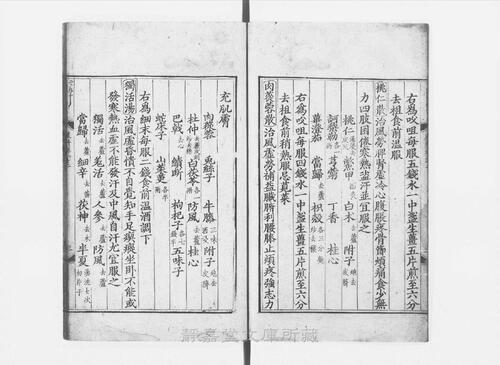 右為㕮咀每服五錢水一中盞生薑五片煎至六分
去柤食前溫服
桃仁散治風勞脾腎虛冷心腹脹疼骨節煩痛食少無
力四肢困倦寒熱盜汗並宜服之
桃仁 鱉甲 白朮 附子
訶黎勒 芎藭 桂心
蓽澄茄 當歸 枳殼
右為㕮咀每服四錢水一中盞生薑五片煎至六分
去柤食前稍熱服忌莧菜
肉蓯蓉散治風虛勞補益臟腑利腰膝止煩疼強志力
充肌膚
肉蓯蓉 兔絲子 牛膝 附子
杜仲 白茯苓 防風 桂心
巴戟 續斷 枸杞子 五味子
蛇床子 山茱萸
右為細末每服二錢食前溫酒調下
獨活湯治風虛昏憒不自覺知手足瘈瘲坐臥不能或
發寒熱血虛不能發汗及中風自汗尤宜服之
獨活 羌活 人參 防風
當歸 細辛 茯神 半夏
靜嘉堂文庫所藏